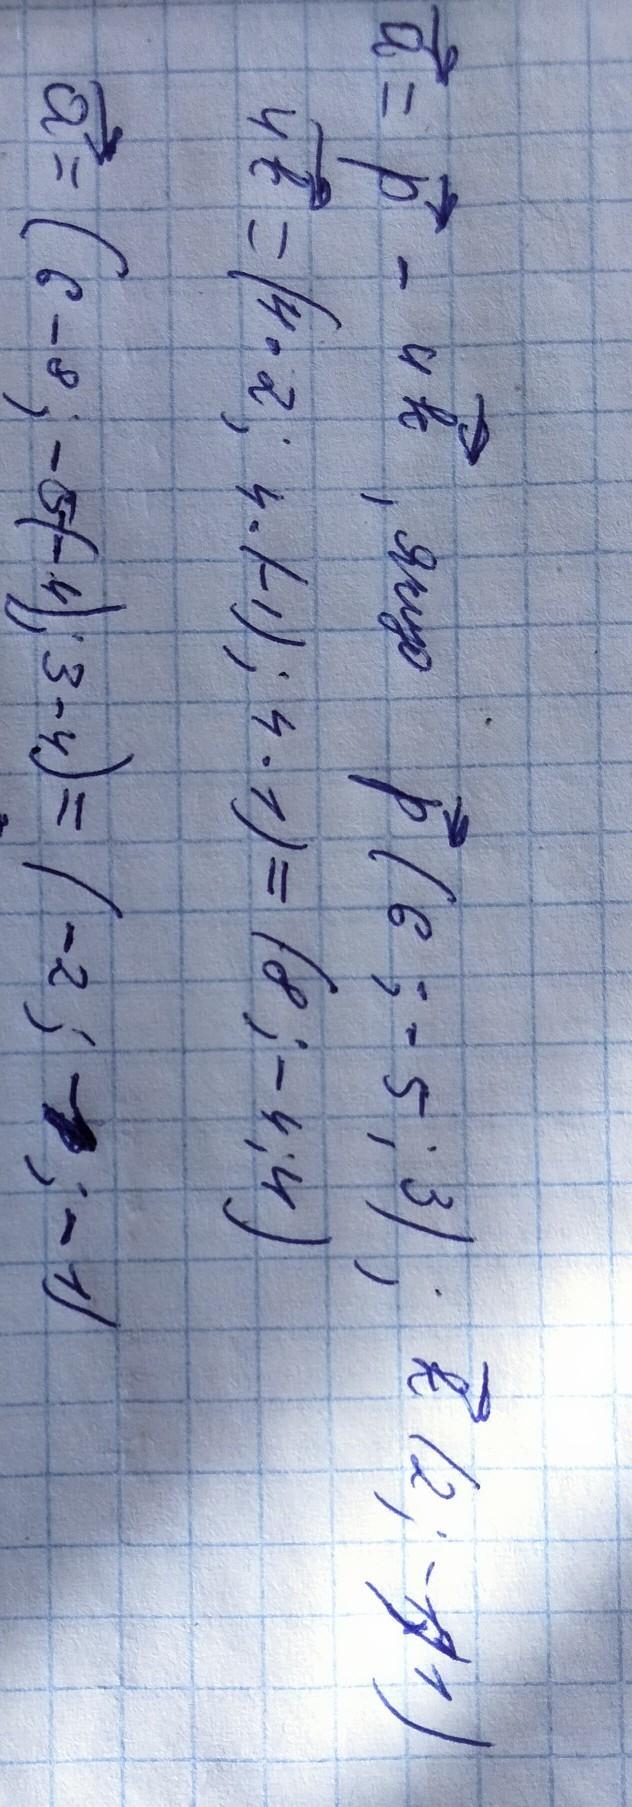 a⃗ = p⃗ - 4k⃗, якщо p⃗ (6; -5; 3); k⃗ (2; -1; 1)
4k⃗ = (4·2; 4·(-1); 4·1) = (8; -4; 4)
a⃗ = (6-8; -5-(-4); 3-4) = (-2; -1; -1)